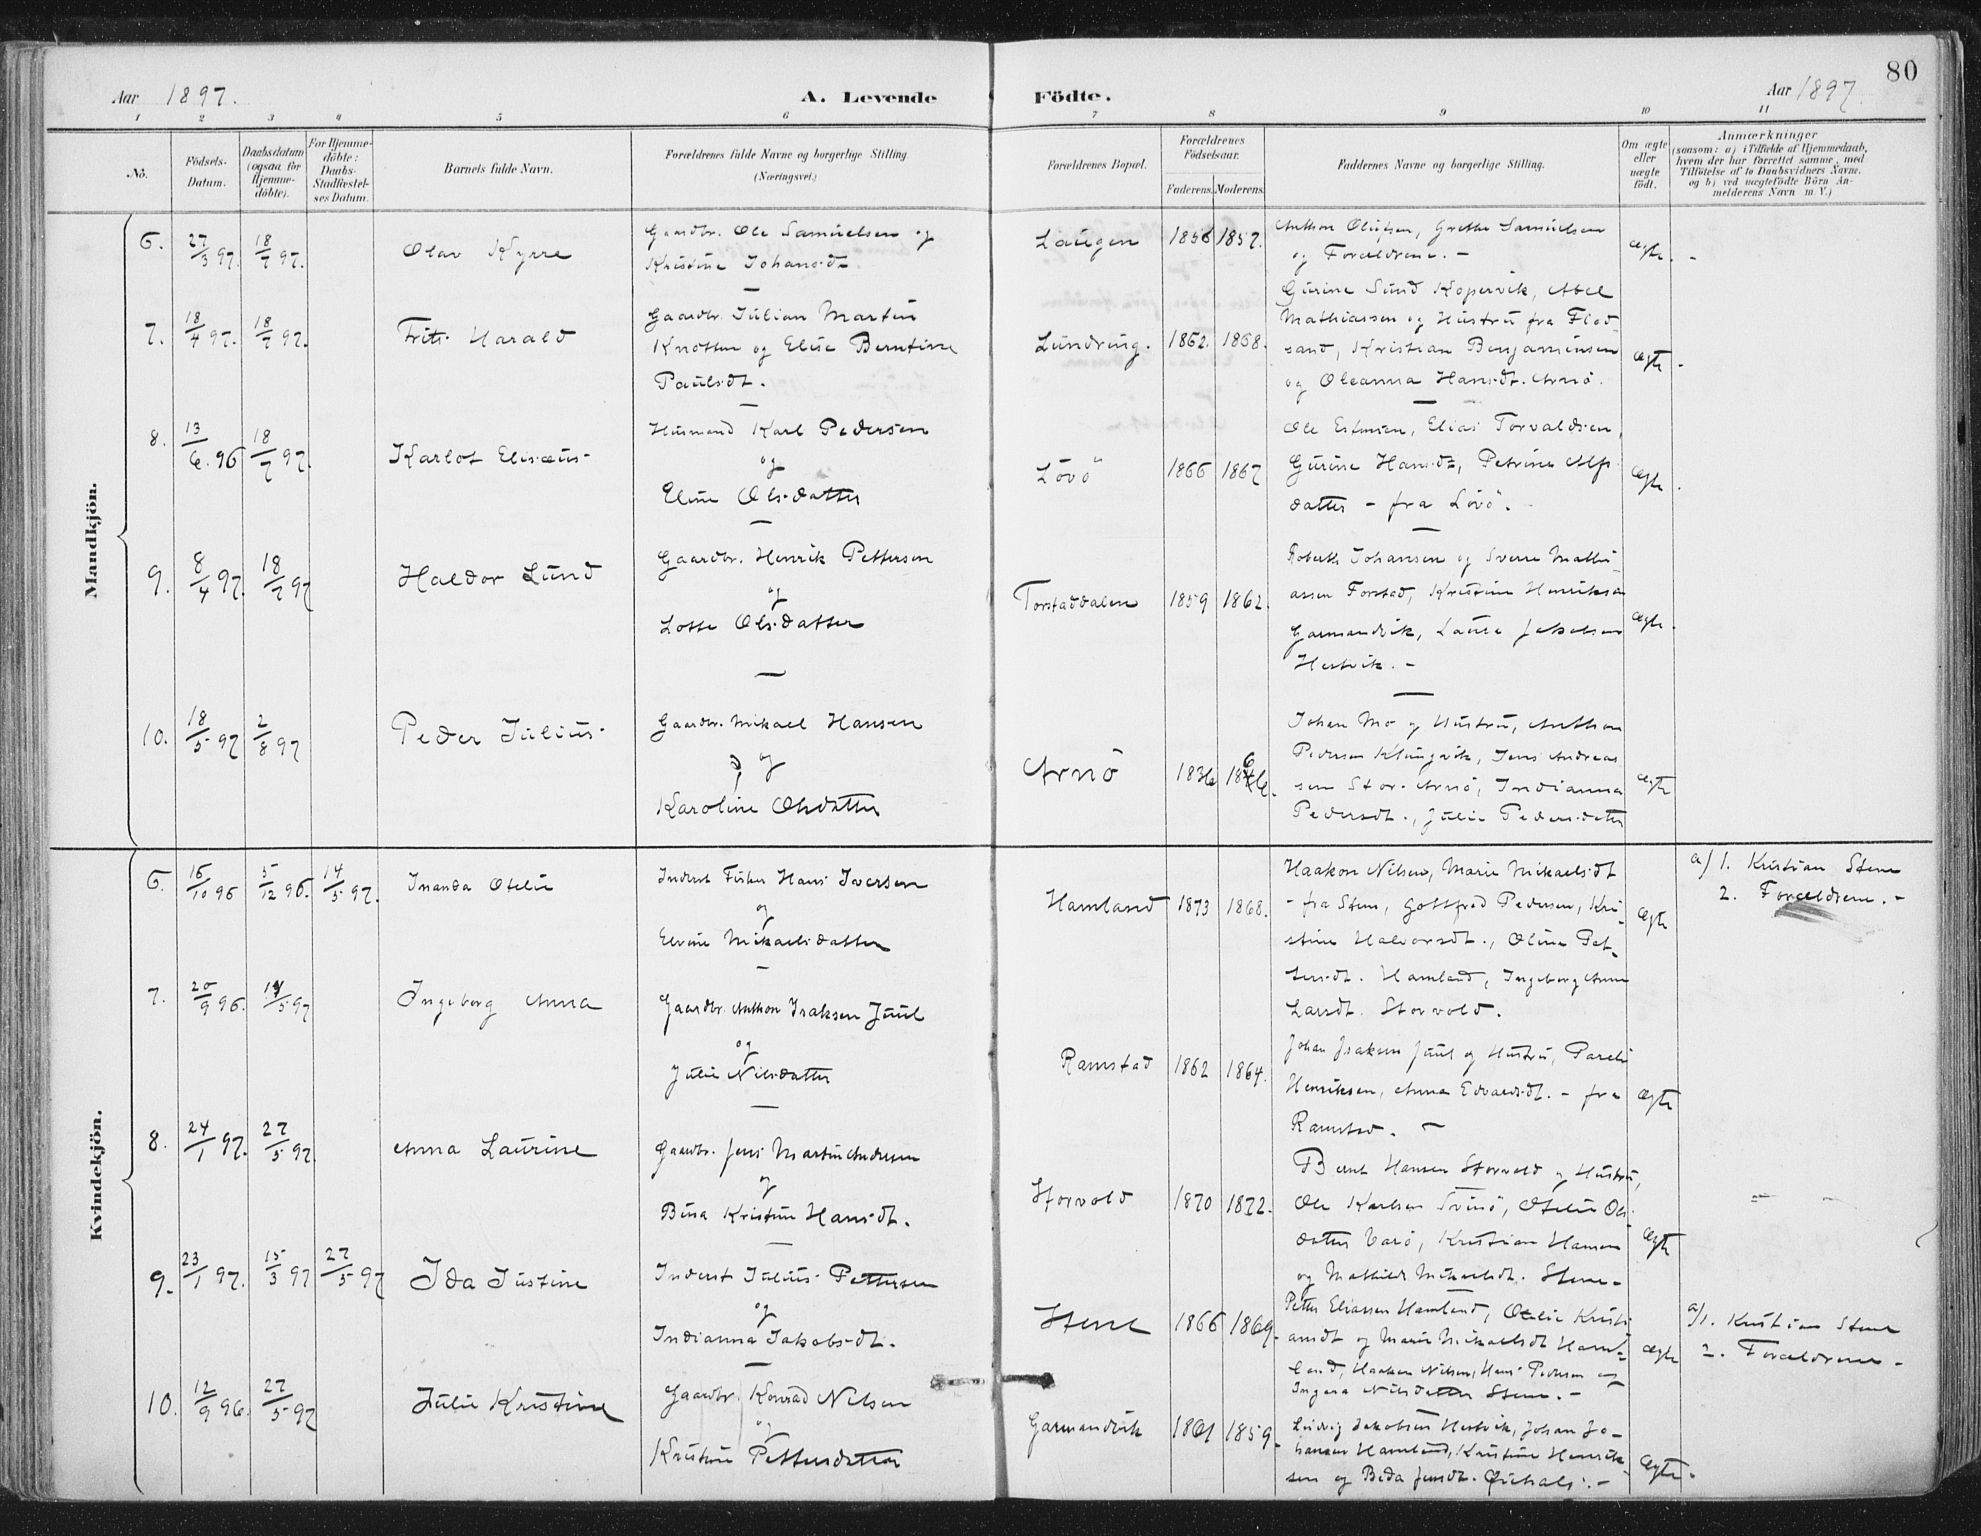 80
Aar 1897. A. Levende Födte. Aar 1897.
1 2 3 4 5 6 7 8 9 10 11
No.
Födsels-Datum.
Daabsdatum (ogsaa for Hjemme-döbte).
For Hjemme-döbte: Daabs-Stadfæstel-ses Datum.
Barnets fulde Navn.
Forældrenes fulde Navne og borgerlige Stilling. (Næringsvei.)
Forældrenes Bopæl.
Forældrenes Födselsaar.
Faderens. Moderens.
Faddernes Navne og borgerlige Stilling.
Om ægte eller uægte födt.
Anmærkninger
(saasom: a) i Tilfælde af Hjemmedaab, hvem der har forrettet samme, med Tilföielse af to Daabsvidners Navne, og b) ved uægtefödte Börn An-melderens Navn m. V.)
Mandkjön.
6. 27/3 97. 18/7 97. Olav Kyrre
Gaardbr. Ole Samuelsen og
Kristine Johansdt.
Laugen 1856 1857.
Anthon Olufsen, Grethe Samuelsen
og Forældrene. -
ægte.
7. 18/4 97. 18/7 97. Frits Harald
Gaardbr. Julian Martin
Knotten og Elise Berntine
Paulsdt.
Lundring. 1862. 1868.
Gurine Sund Kopervik, Abel
Mathiassen og Hustru fra Flod-
sand, Kristian Benjaminsen
og Oleanna Hansdt. Arnö.
ægte.
8. 13/6 96 18/7 97. Karlot Elisæus
Husmand Karl Pedersen
og
Eline Olsdatter
Lövö 1866 1867
Ole Estensen, Elias Torvaldsen,
Gurine Hansdt, Petrine Alfs
datter - fra Lövö.
ægte.
9. 8/4 97. 18/7 97 Haldor Lund
Gaardbr. Henrik Pettersen
og
Lotte Olsdatter
Torstaddalen 1859 1862.
Roberth Johansen og Sverre Mathi-
assen Forstad, Kristine Henriksen
Garmandvik, Laura Jakobsen
Hestvik. -
ægte.
10. 18/5 97 2/8 97 Peder Julius
Gaardbr. Mikael Hansen
og
Karoline Olsdatter
Arnö 1836 1846.
Johan Mo og Hustru, Anthon
Pedersen Klungvik, Jens Andreas
sen Stor-Arnö, Indianna
Pedersdt., Julie Pedersdatter
ægte
Kvindekjön.
6. 16/10 96 5/12 96. 14/5 97. Inanda Otelie
Inderst Fisker Hans Iversen
og
Elvine Mikaelsdatter
Hamland 1873 1868.
Haakon Nilsen, Marie Mikaelsdt
- fra Stene, Gottfred Pedersen, Kri-
stine Halvorsdt., Oline Pet-
tersdt. Hamland, Ingeborg Anne
Larsdt. Storvold.
ægte
a/ 1. Kristian Stene
2. Forældrene. -
7. 20/9 96. 14/5 97 Ingeborg Anna
Gaardbr. Anthon Isaksen Juul
og
Julie Nilsdatter
Ramstad 1862 1864.
Johan Isaksen Juul og Hustru, Pareli
Henriksen, Anna Edvardsdt. - fra
Ramstad. -
ægte
8. 24/1 97. 27/5 97. Anna Laurine
Gaardbr. Jens Martin Andresen
og
Bina Kristine Hansdt.
Storvold 1870 1872.
Bernt Hansen Storvold og Hustru,
Ole Karlsen Svinö, Otelie Ols-
datter Varö, Kristian Hansen
og Mathilde Mikaelsdt. Stene-
ægte
9. 23/1 97. 15/3 97 27/5 97 Ida Justine
Inderst Julius Pettersen
og
Indianna Jakobsdt.
Stene 1866 1869.
Petter Eliassen Hamland, Otelie Kristi
ansdt og Marie Mikaelsdt Ham-
land, Haakon Nilsen, Hans Pedersen og
Ingera Nilsdatter Stene. -
ægte
a/1. Kristian Stene
2. Forældrene -
10. 12/9 96. 27/5 97 Julie Kristine
Gaardbr. Konrad Nilsen
og
Kristine Pettersdatter
Garmandvik 1861 1859.
Ludvig Jakobsen Hestvik, Johan Jo-
hansen Hamland, Kristine Henrik-
sen og Beda Jensdt.
ægte.